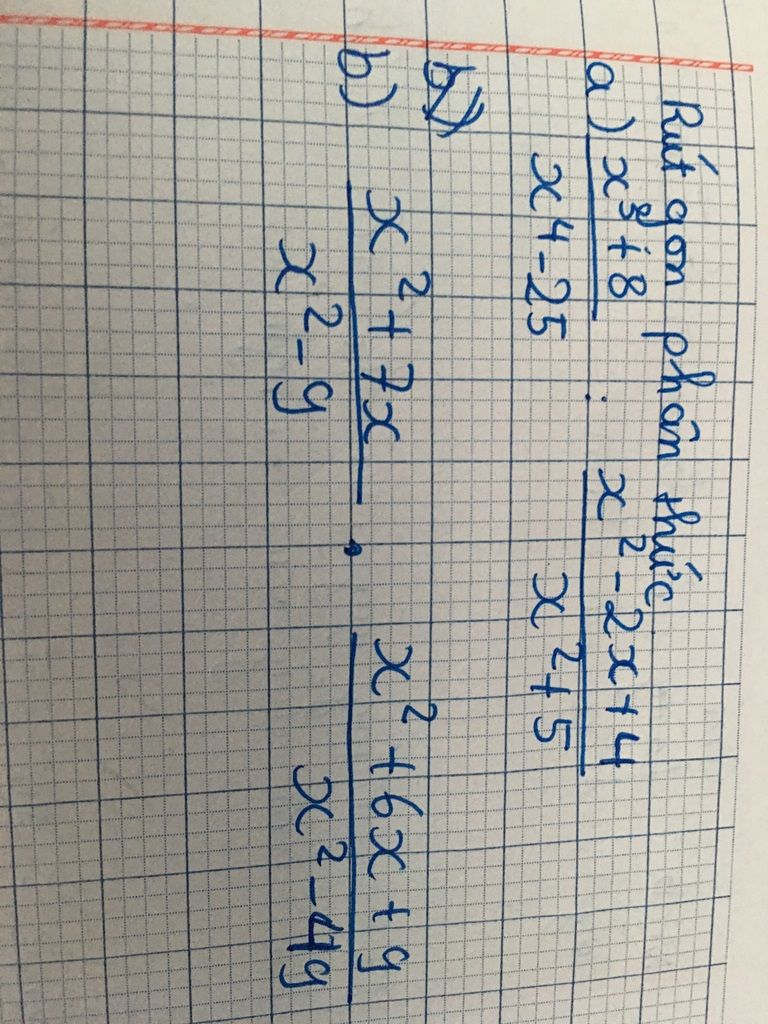 Rút gọn phân thức
a) \frac{x^3+8}{x^4-25} : \frac{x^2-2x+4}{x^2+5}
b)
b) \frac{x^2+7x}{x^2-9} . \frac{x^2+6x+9}{x^2-49}